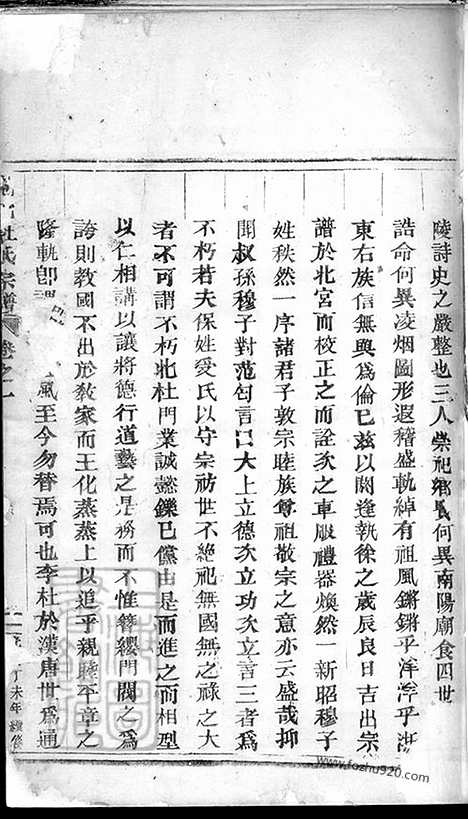 陵詩史之嚴整也三人崇祀鄉賢何異南陽廟食四世
誥命何異凌烟圖形遐稽盛軌綽有祖風鏘鏘乎洋洋乎浙
東右族信無與爲倫已茲以閼逢執徐之歲辰良日吉出宗
譜於北宮而校正之而詮次之車服禮器煥然一新昭穆子
姓秩然一序諸君子敦宗睦族尊祖敬宗之意亦云盛哉抑
聞叔孫穆子對范匄言曰大上立德次立功次立言三者爲
不朽若夫保姓受氏以守宗祊世不絶祀無國無之祿之大
者不可謂不朽北杜門業誠懿鑠已儻由是而進之而相型
以仁相講以讓將德行道藝之是務而不惟簪纓門閥之爲
誇則教國不出於教家而王化蒸蒸上以追乎親睦平章之
隆軌卽 風至今勿替焉可也李杜於漢唐世爲通
杜氏宗譜 卷之一
丁未年續修
www.fozhu920.com